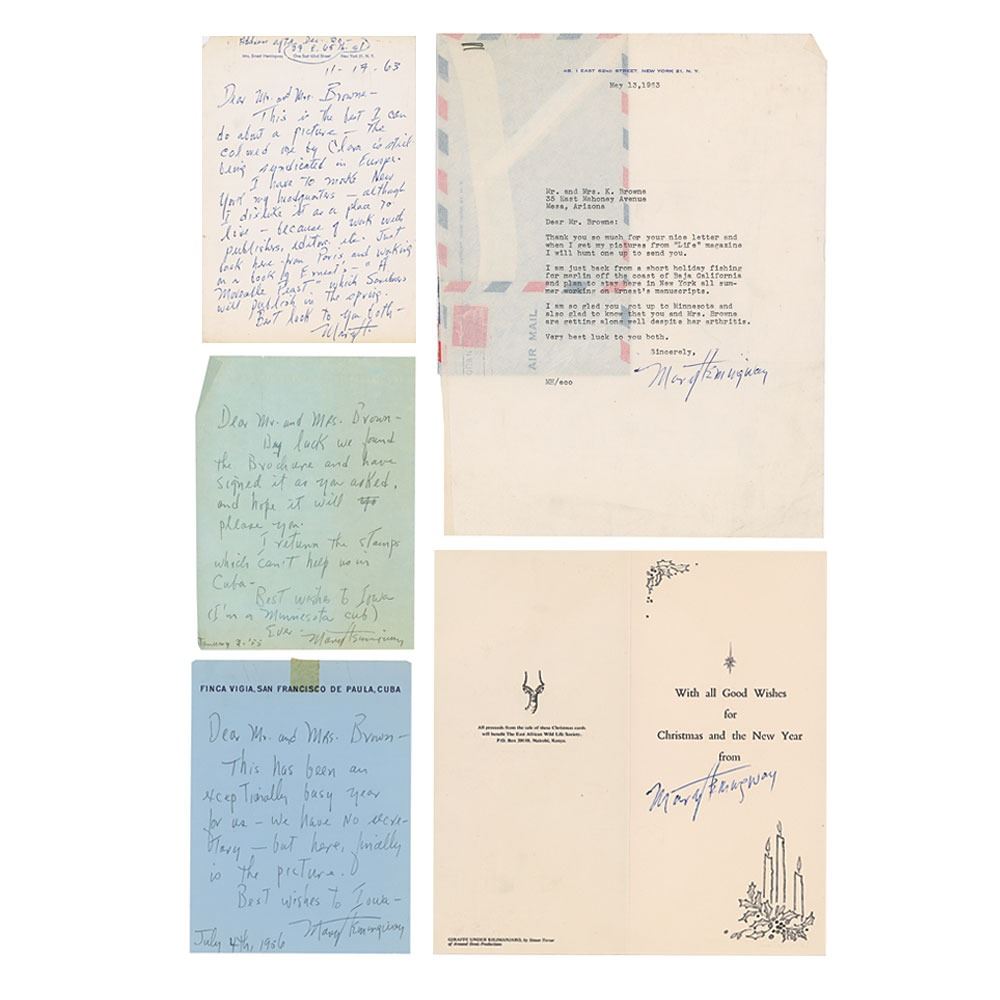 Address after Dec. 20 -
39 E. 65th St
Mrs. Ernest Hemingway One East 62nd Street New York 21, N. Y.
11-19-63
Dear Mr. and Mrs. Browne -
This is the best I can
do about a picture - the
colored one by Clara is still
being syndicated in Europe.
I have to make New
York my headquarters - although
I dislike it as a place to
live - because of work with
publishers, editors, etc. Just
back here from Paris and working
on a book by Ernest's - "A
Moveable Feast" which Scribners
will publish in the spring.
Best luck to you both -
Mary H.
Dear Mr. and Mrs. Brown -
By luck we found
the Brochure and have
signed it as you asked,
and hope it will
please you.
I return the stamps
which can't help us in
Cuba -
Best wishes to Iowa
(I'm a Minnesota cub)
Ever - Mary Hemingway
January 2 - '55
FINCA VIGIA, SAN FRANCISCO DE PAULA, CUBA
Dear Mr. and Mrs. Brown -
This has been an
exceptionally busy year
for us - we have no secre-
tary - but here, finally
is the picture.
Best wishes to Iowa -
Mary Hemingway
July 4th, 1956
4B, 1 EAST 62ND STREET, NEW YORK 21, N. Y.
May 13,1963
Mr. and Mrs. K. Browne
35 East Mahoney Avenue
Mesa, Arizona
Dear Mr. Browne:
Thank you so much for your nice letter and
when I get my pictures from "Life" magazine
I will hunt one up to send you.
I am just back from a short holiday fishing
for marlin off the coast of Baja California
and plan to stay here in New York all sum-
mer working on Ernest's manuscripts.
I am so glad you got up to Minnesota and
also glad to know that you and Mrs. Browne
are getting along well despite her arthritis.
Very best luck to you both.
Sincerely,
Mary Hemingway
MH/eoo
AIR MAIL
All proceeds from the sale of these Christmas cards
will benefit The East African Wild Life Society.
P.O. Box 20110, Nairobi, Kenya.
With all Good Wishes
for
Christmas and the New Year
from
Mary Hemingway
GIRAFFE UNDER KILIMANJARO, by Simon Trevor
of Armand Denis Productions